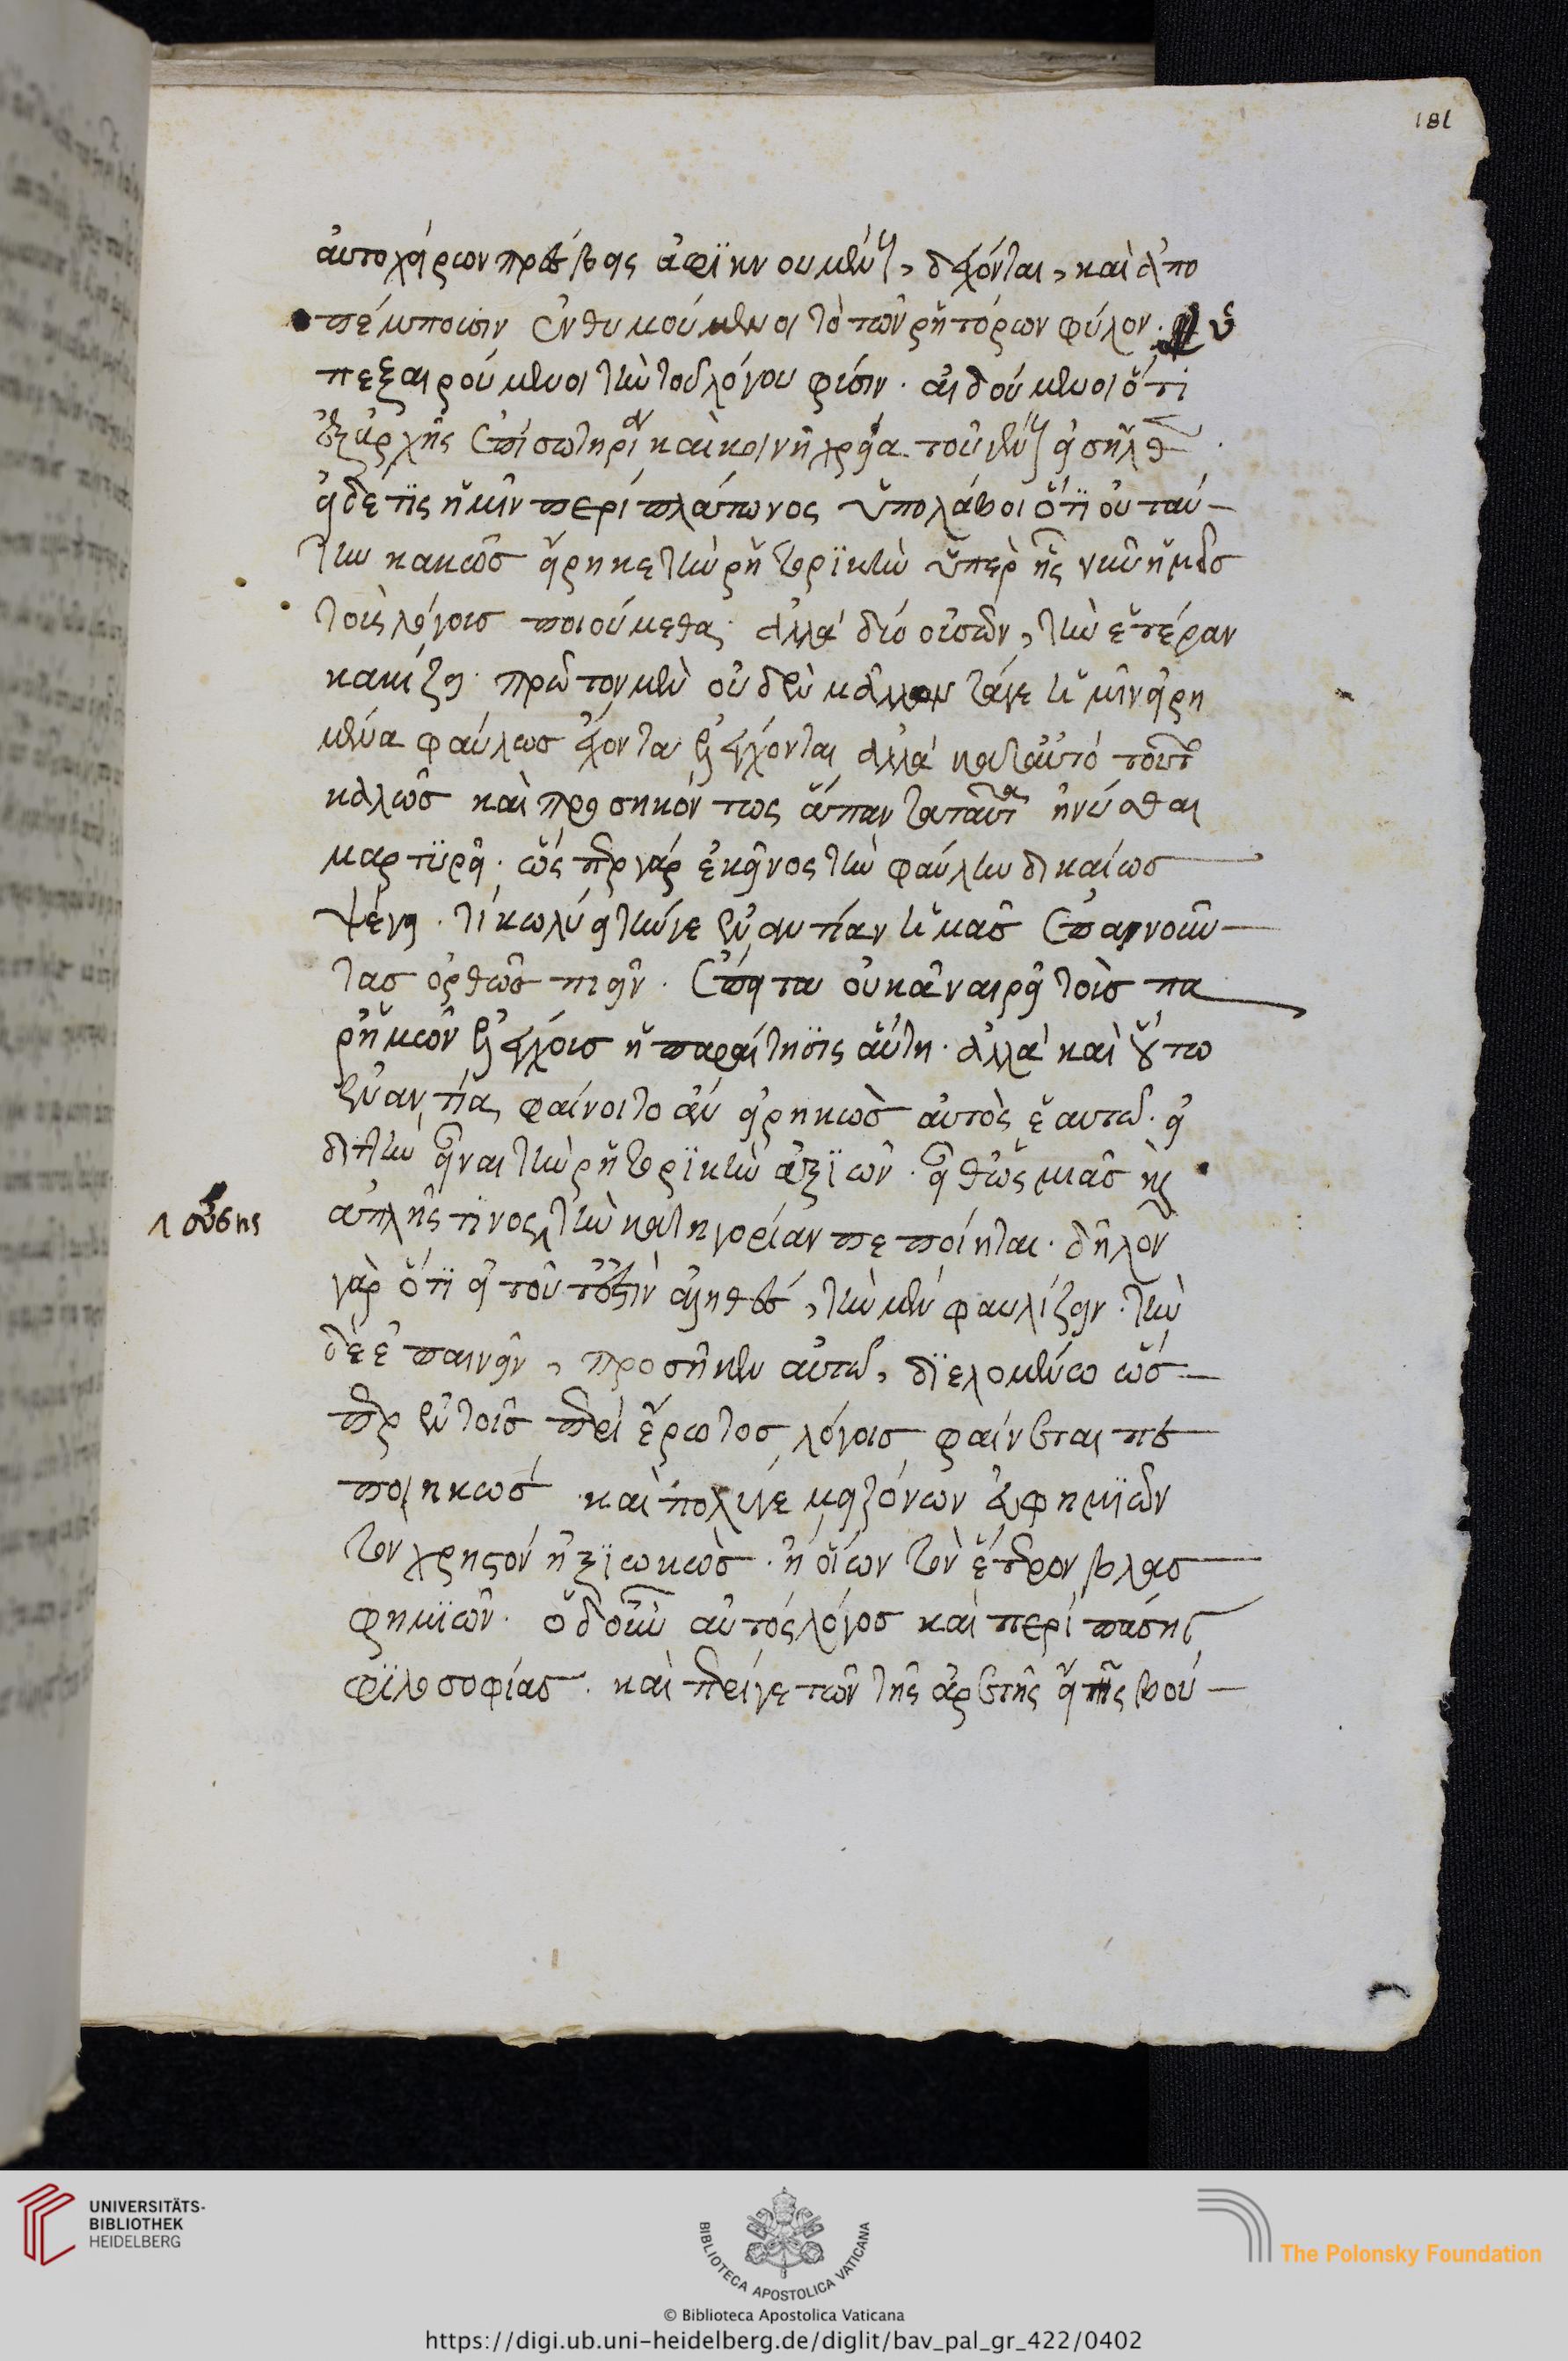 181
αὐτοχείρων πρέσβεις ἀφϊκνουμένους, δέχονται, καὶ ἀπο
πέμπουσιν ἐνθυμούμενοι τὸ τῶν ῥητόρων φύλον. ὑ
πεξαιρούμενοι τὴν τοῦ λόγου φύσιν. αἰδούμενοι ὅτι
ἐξαρχῆς ἐπὶ σωτηρίαν καὶ κοινῇ χρεία τοῦ γένους εἰσῆλθεν.
εἰ δέ τις ἡμῖν περὶ πλάτωνος ὑπολάβοι ὅτϊ οὐ ταύ-
την κακῶς εἴρηκε τὴν ῥητορϊκὴν ὑπὲρ ἧς νῦν ἡμεῖς
τοὺς λόγους ποιούμεθα. ἀλλὰ δύο οὐσῶν, τὴν ἑτέραν
κακίζει. πρῶτον μὲν οὐδὲν μᾶλλον τάγε ἡμῖν εἰρη
μένα φαύλως ἔχοντα ἐλέγχονται ἀλλὰ κατ' αὐτὸ τοῦτο
καλῶς καὶ προσηκόντως ἅπαντα ταῦτα ἠνύσθαι
μαρτϋρεῖ. ὥσπερ γὰρ ἐκεῖνος τὴν φαύλην δικαίως
ψέγει. τί κωλύει τήνγε ἐναντίαν ἡμᾶς ἐπαινοῦν-
τας ὀρθῶς ποιεῖν. ἔπειτα οὐκ ἀναιρεῖ τοὺς πα
ρ' ἡμῶν ἐλέγχους ἡ παραίτησϊς αὕτη. ἀλλὰ καὶ οὕτω
ἐναντία φαίνοιτο ἂν εἰρηκὼς αὐτὸς ἑαυτῶ. εἰ
διττὴν εἶναι τὴν ῥητορϊκὴν ἀξϊῶν. εἶθ' ὡς μιᾶς καὶ
ἁπλῆς τϊνος τὴν κατηγορίαν πεποίηται. δῆλον
οὔσης
γὰρ ὅτϊ εἰ τοῦτό ἐστιν ἀληθές, τὴν μὲν φαυλίζειν. τὴν
δὲ ἐπαινεῖν, προσῆκεν αὐτῶ, δϊελομένω ὥσ-
περ ἐν τοῖς περὶ ἔρωτος λόγοις φαίνεται πε
ποιηκώς. καὶ πολύγε μειζόνων εὐφημϊῶν
τὸν χρηστὸν ἠξϊωκὼς. ἢ οἵων τὸν ἕτερον βλασ
φημϊῶν. ὁ δ' οὖν αὐτὸς λόγος καὶ περὶ πάσης
φϊλοσοφίας. καὶ περίγε τῶν τῆς ἀρετῆς εἴ τις βού-
UNIVERSITÄTS-
BIBLIOTHEK
HEIDELBERG
BIBLIOTECA APOSTOLICA VATICANA
The Polonsky Foundation
© Biblioteca Apostolica Vaticana
https://digi.ub.uni-heidelberg.de/diglit/bav_pal_gr_422/0402